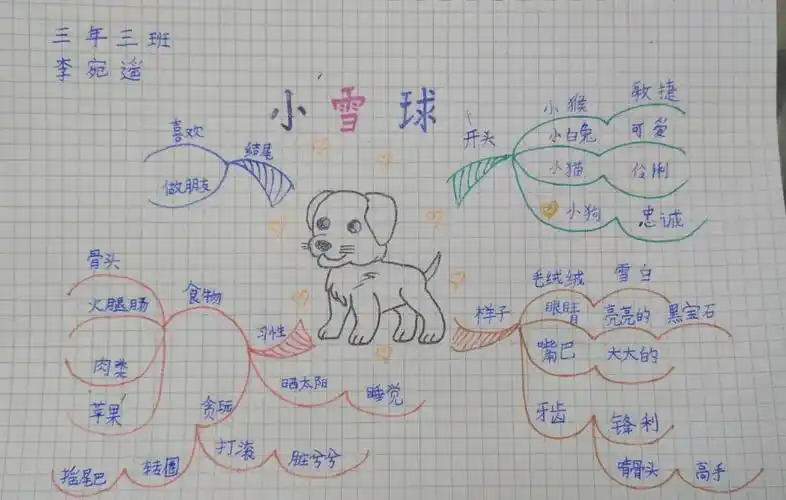 三年三班
李宛遥
小雪球
开头
小猴 敏捷
小白兔 可爱
小猫 伶俐
小狗 忠诚
样子
毛绒绒 雪白
眼睛 亮亮的 黑宝石
嘴巴 大大的
牙齿 锋利
啃骨头 高手
习性
食物
骨头
火腿肠
肉类
苹果
晒太阳 睡觉
贪玩
打滚 脏兮兮
转圈 摇尾巴
结尾
喜欢
做朋友